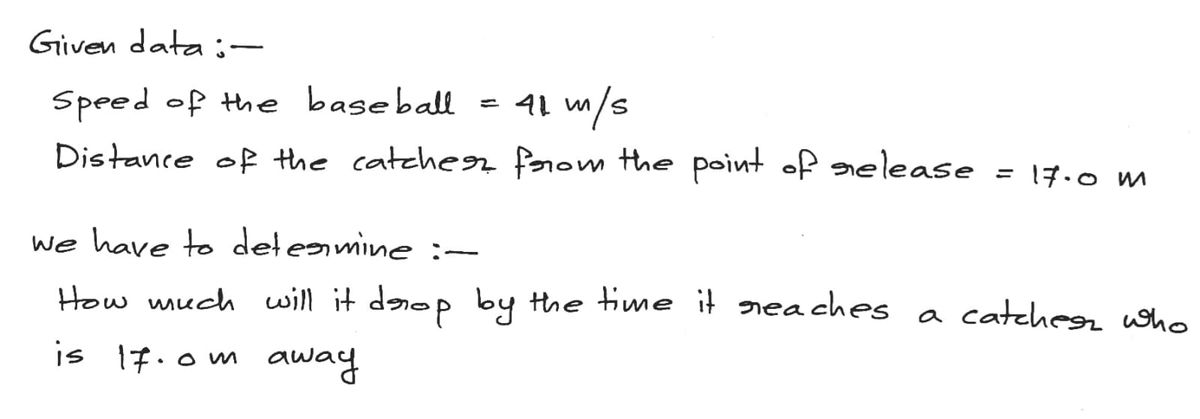 Given data :-
Speed of the baseball = 41 m/s
Distance of the catcher from the point of release = 17.0 m
we have to determine :-
How much will it drop by the time it reaches a catcher who
is 17.0 m away